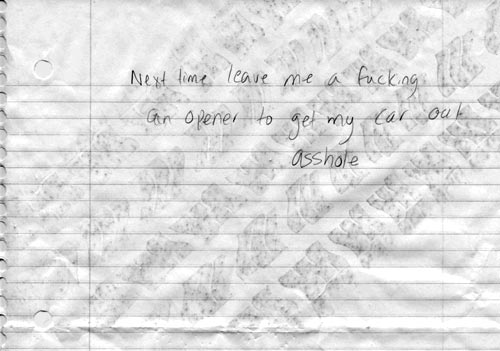 Next time leave me a fucking
can opener to get my car out
asshole